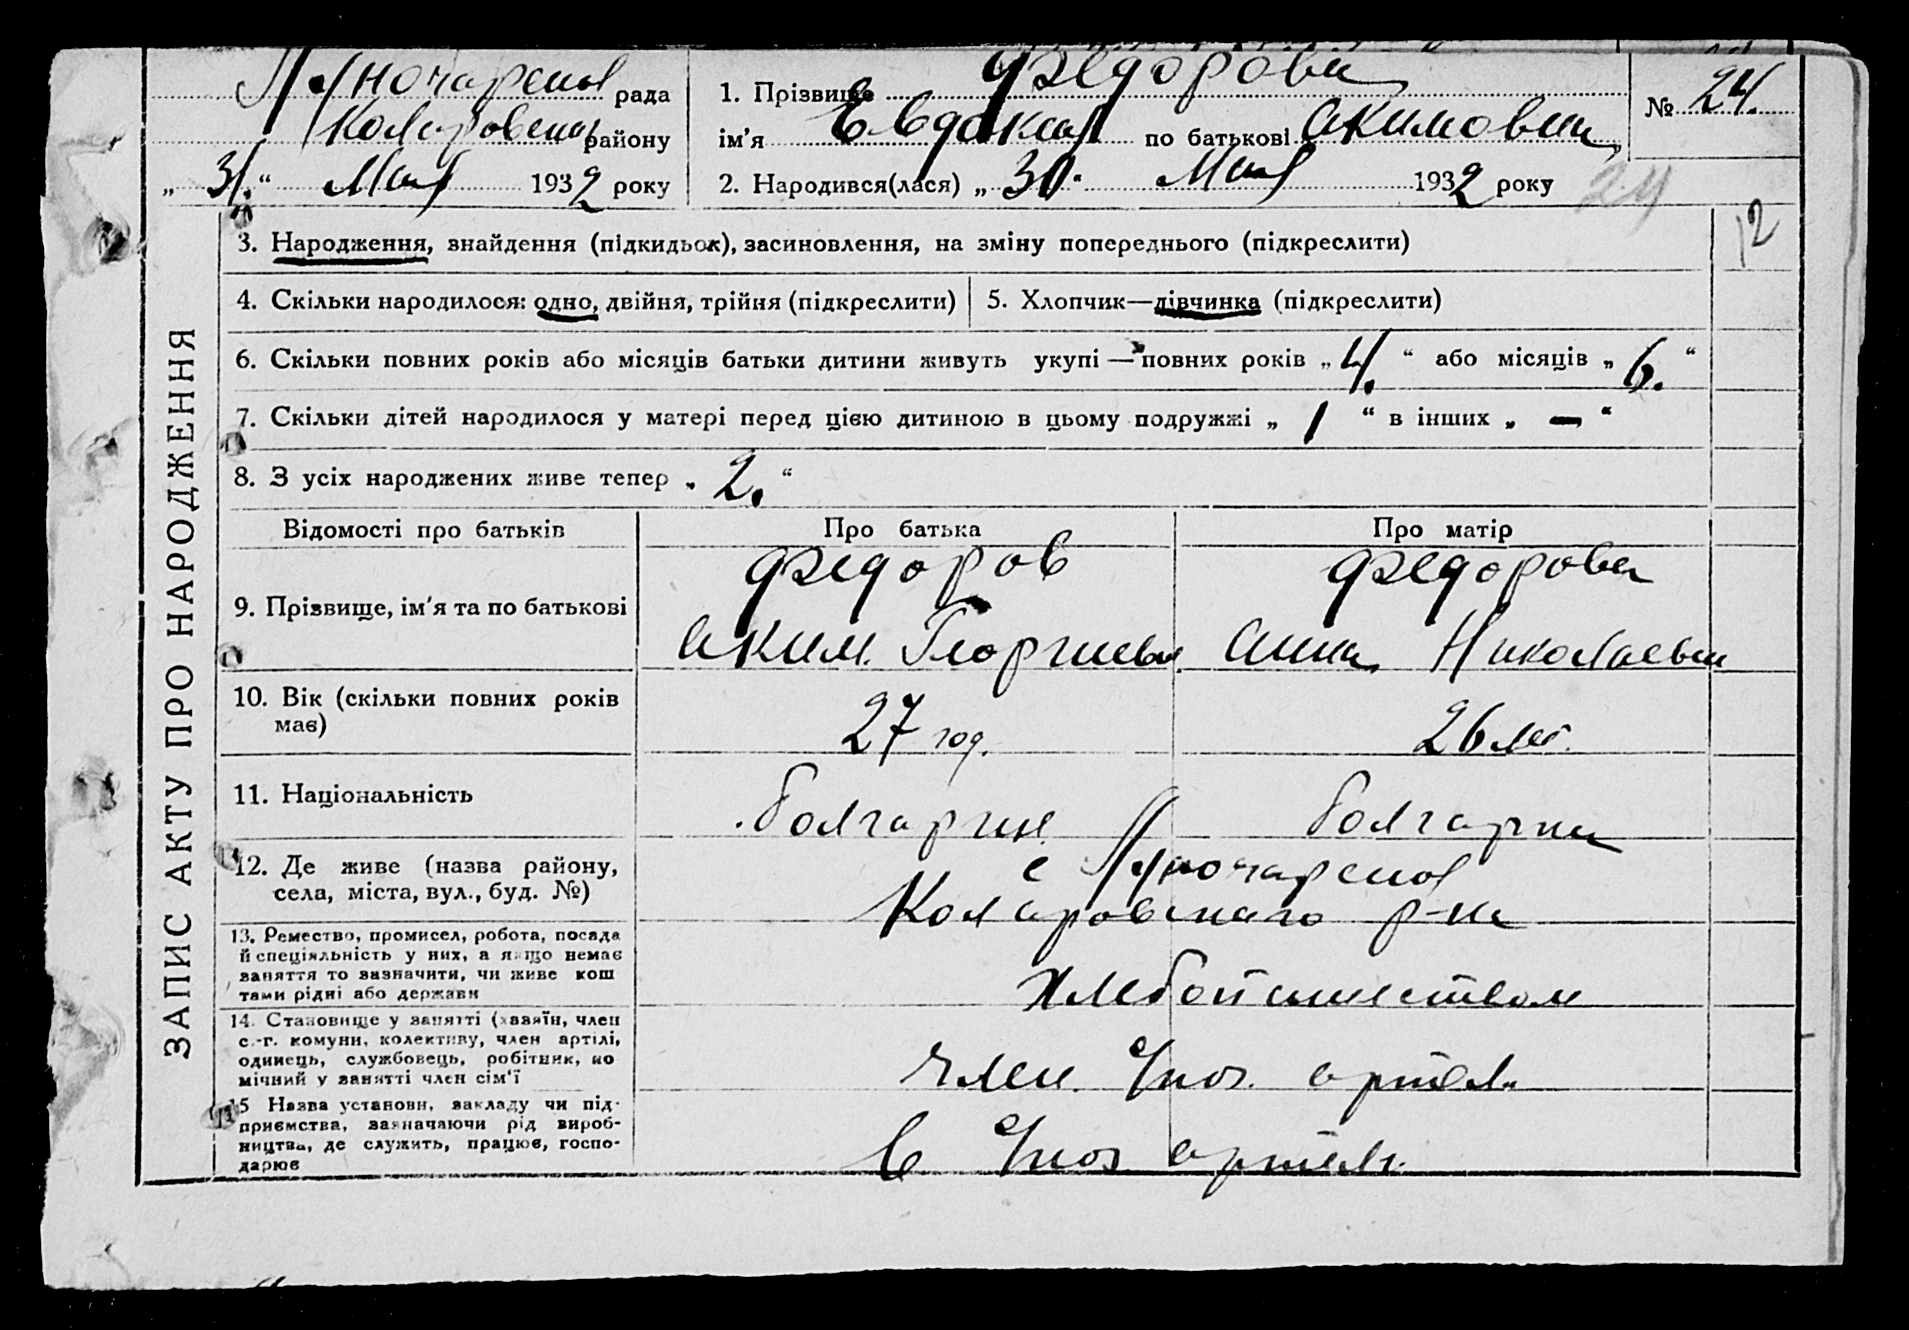 Луночарская рада
Коларовский району
„ 31. “ Мая 1932 року
1. Прізвище Федорова
ім’я Евдокия по батькові Акимовна
2. Народився(лася) „ 30 “ Мая 1932 року
№ 24.
24
12
ЗАПИС АКТУ ПРО НАРОДЖЕННЯ
3. Народження, знайдення (підкидьок), засиновлення, на зміну попереднього (підкреслити)
4. Скільки народилося: одно, двійня, трійня (підкреслити) 5. Хлопчик—дівчинка (підкреслити)
6. Скільки повних років або місяців батьки дитини живуть укупі — повних років „ 4. “ або місяців „ 6. “
7. Скільки дітей народилося у матері перед цією дитиною в цьому подружжі „ 1 “ в інших „ — “
8. З усіх народжених живе тепер „ 2. “
Відомості про батьків Про батька Про матір
9. Прізвище, ім’я та по батькові
Федоров Федорова
Аким. Георгиевич Анна Николаевна
10. Вік (скільки повних років
має)
27 год. 26 лет.
11. Національність
болгарин болгарка
12. Де живе (назва району,
села, міста, вул., буд. №)
с Луночарская
Коларовскаго р-на
13. Ремество, промисел, робота, посада
й спеціяльність у них, а якщо немає
заняття то зазначити, чи живе кош
тами рідні або держави
хлебопашеством
14. Становище у занятті (хазяїн, член
с.-г. комуни, колективу, член артілі,
одинець, службовець, робітник, по
мічний у занятті член сім’ї
член. с/хоз. артели
15 Назва установи, закладу чи під-
приємства, зазначаючи рід вироб-
ництва, де служить, працює, госпо-
дарює
в с/хоз артели.